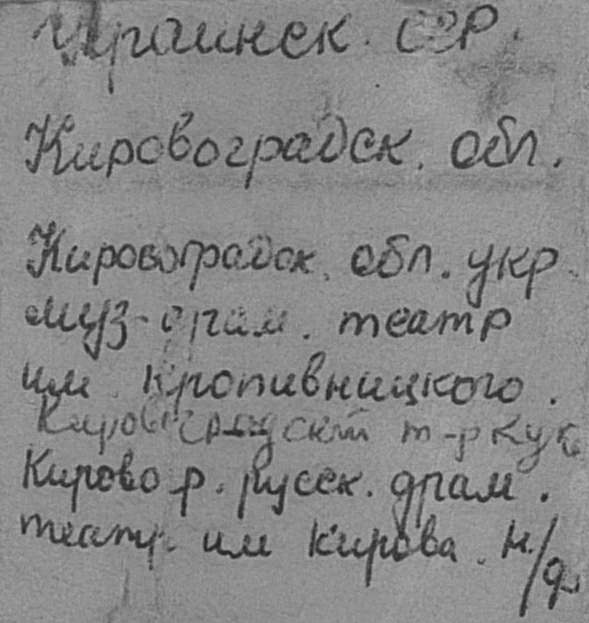 Украинск. ССР.
Кировоградск. обл.
Кировоградск. обл. укр.
муз-драм. театр
им. Кропивницкого.
Кировоградский т-р кук
Кирово р. русск. драм.
театр им Кирова. н/д